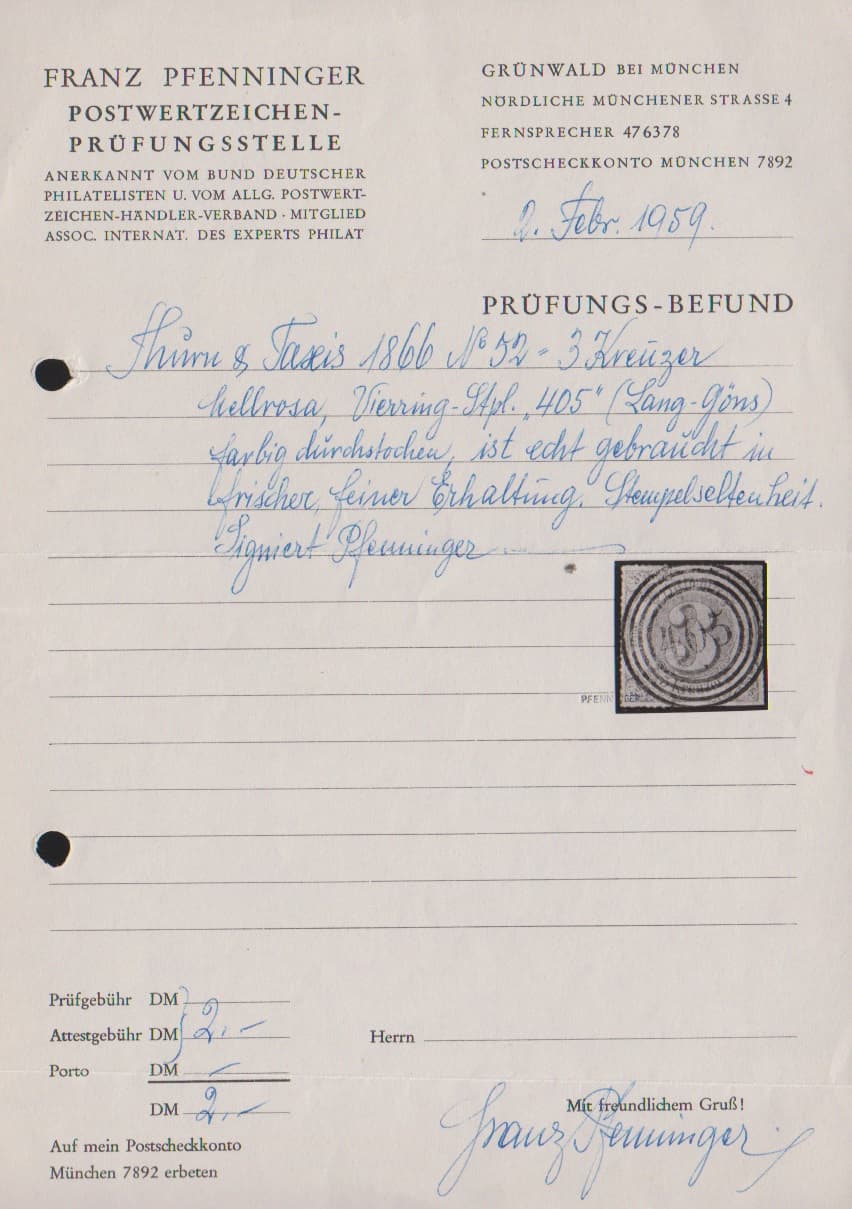 FRANZ PFENNINGER
POSTWERTZEICHEN-
PRÜFUNGSSTELLE
ANERKANNT VOM BUND DEUTSCHER
PHILATELISTEN U. VOM ALLG. POSTWERT-
ZEICHEN-HÄNDLER-VERBAND · MITGLIED
ASSOC. INTERNAT. DES EXPERTS PHILAT
GRÜNWALD BEI MÜNCHEN
NÖRDLICHE MÜNCHENER STRASSE 4
FERNSPRECHER 476378
POSTSCHECKKONTO MÜNCHEN 7892
2. Febr. 1959.
PRÜFUNGS-BEFUND
Thurn & Taxis 1866 No 52 = 3 Kreuzer
hellrosa, Vierring-Stpl. „405" (Lang-Göns)
farbig durchstochen, ist echt gebraucht in
frischer, feiner Erhaltung. Stempelseltenheit.
Signiert Pfenninger
405
PFENNINGER
Prüfgebühr DM
Attestgebühr DM 2.–
Porto DM –
DM 2.–
Auf mein Postscheckkonto
München 7892 erbeten
Herrn
Mit freundlichem Gruß!
Franz Pfenninger